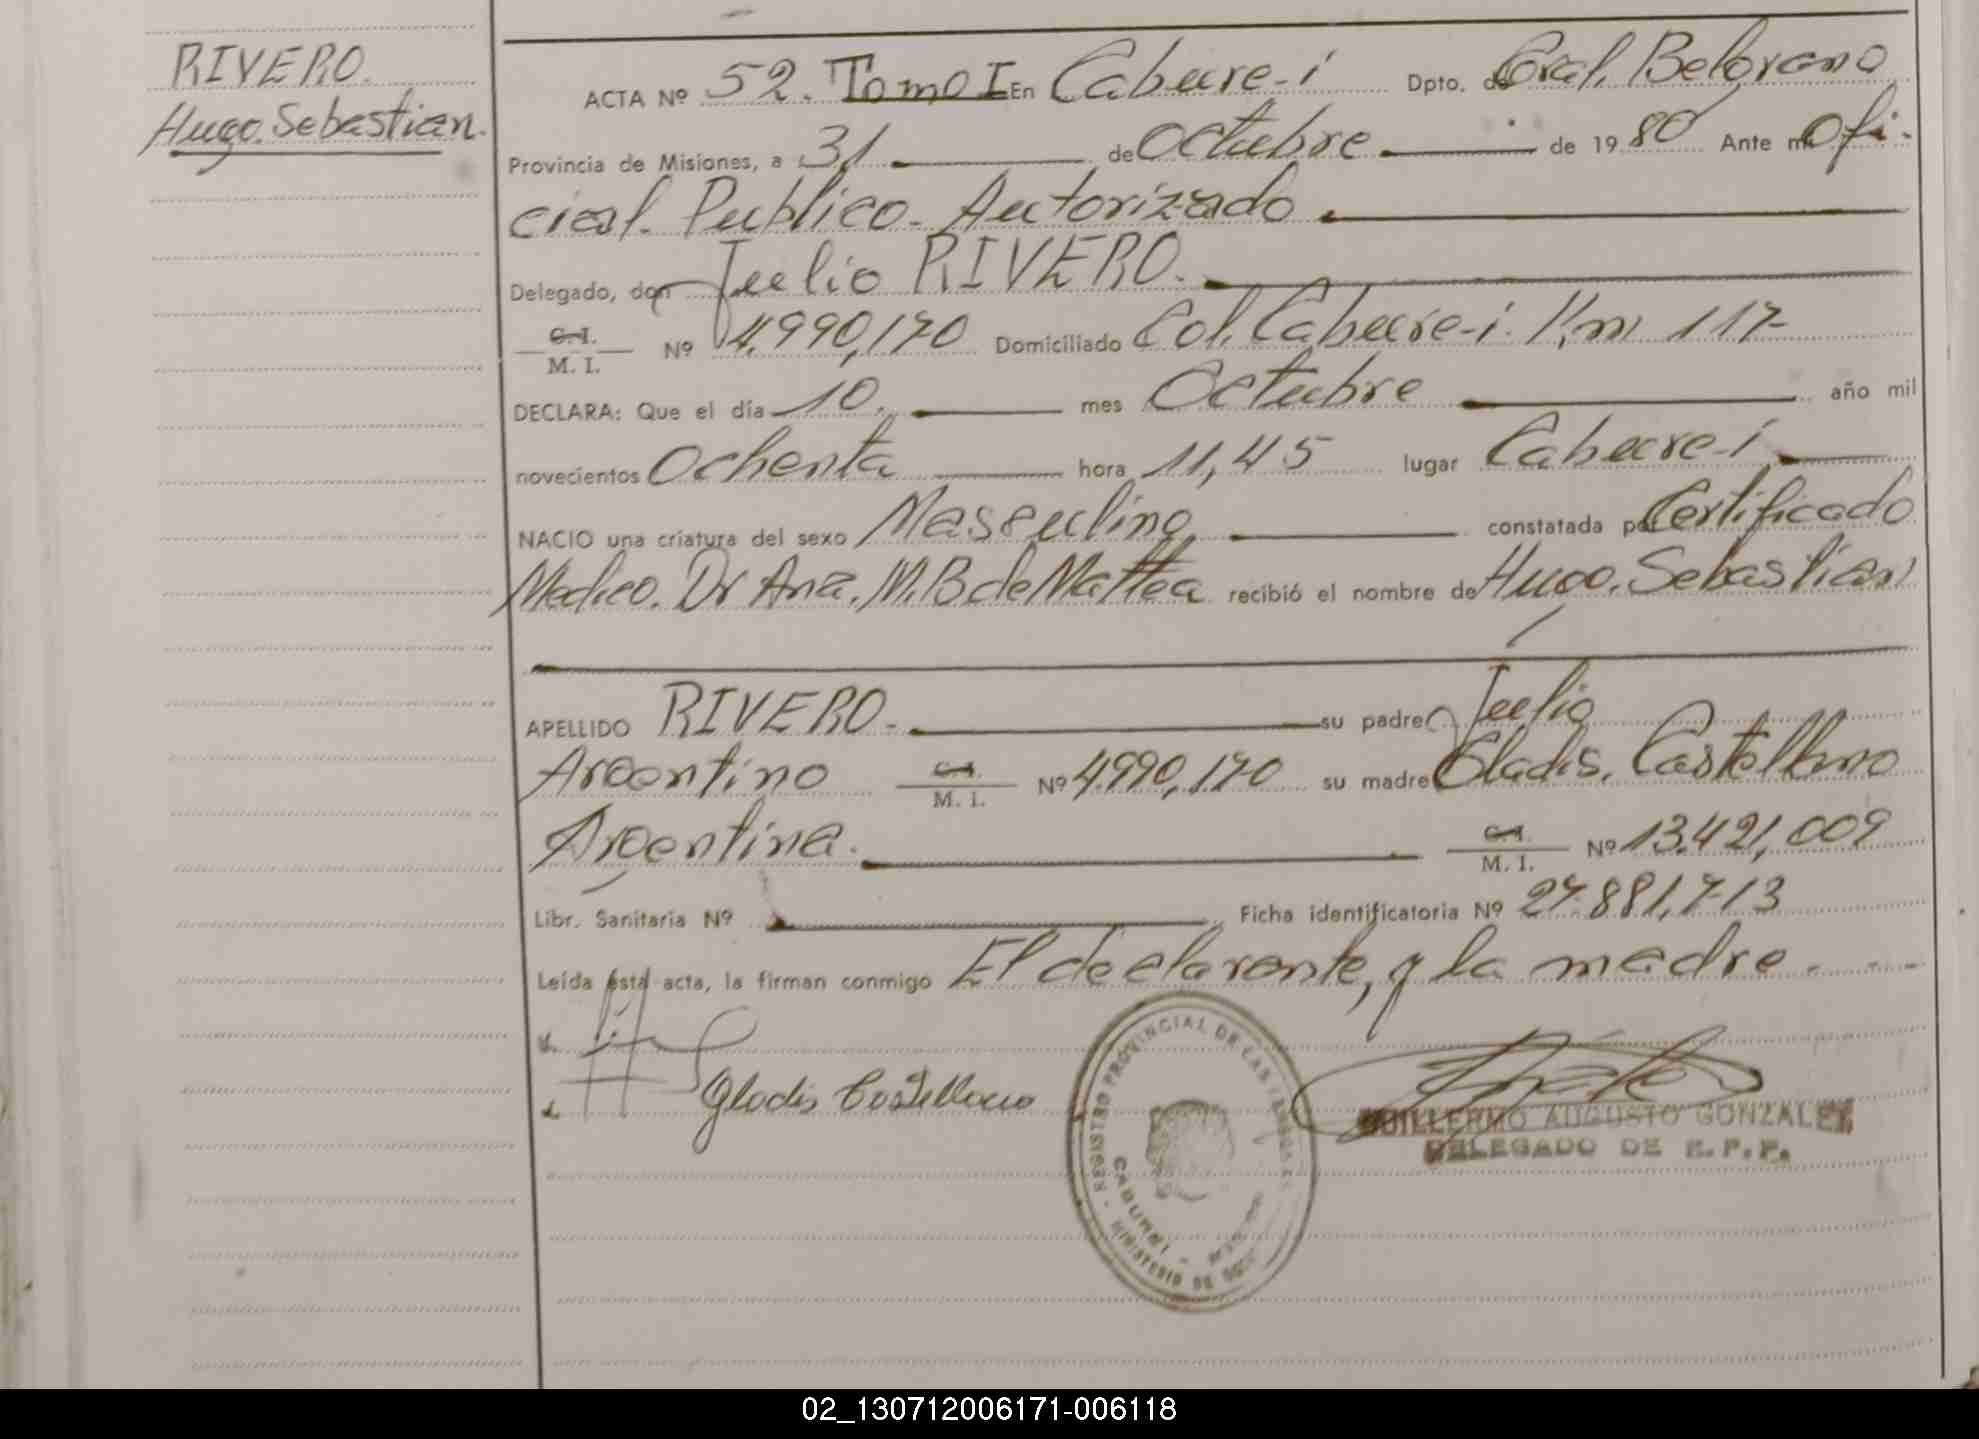 RIVERO.
Hugo. Sebastian.
ACTA Nº 52. Tomo I En Cabure-i Dpto. de Gral. Belgrano
Provincia de Misiones, a 31 de Octubre de 1980 Ante mi Ofi-
cial. Publico. Autorizado
Delegado, don Julio RIVERO.
C.I.
M. I. Nº 4.990,170 Domiciliado Col. Cabure-i. Km 117-
DECLARA: Que el día 10. mes Octubre año mil
novecientos Ochenta hora 11,45 lugar Cabure-i
NACIO una criatura del sexo Masculino constatada por Certificado
Medico. Dr Ana. M. B de Mattea recibió el nombre de Hugo. Sebastian
APELLIDO RIVERO. su padre Julio
Argentino C.I.
M. I. Nº 4.990,170 su madre Gladis. Castellano
Argentina. C.I.
M. I. Nº 13.421,009
Libr. Sanitaria Nº Ficha identificatoria Nº 27.881,713
Leída esta acta, la firman conmigo El declarante, y la madre.
Gladis Castellano
REGISTRO PROVINCIAL DE LAS PERSONAS
CABUREI
MINISTERIO DE
GUILLERMO AUGUSTO GONZALEZ
DELEGADO DE R.P.P.
02_130712006171-006118